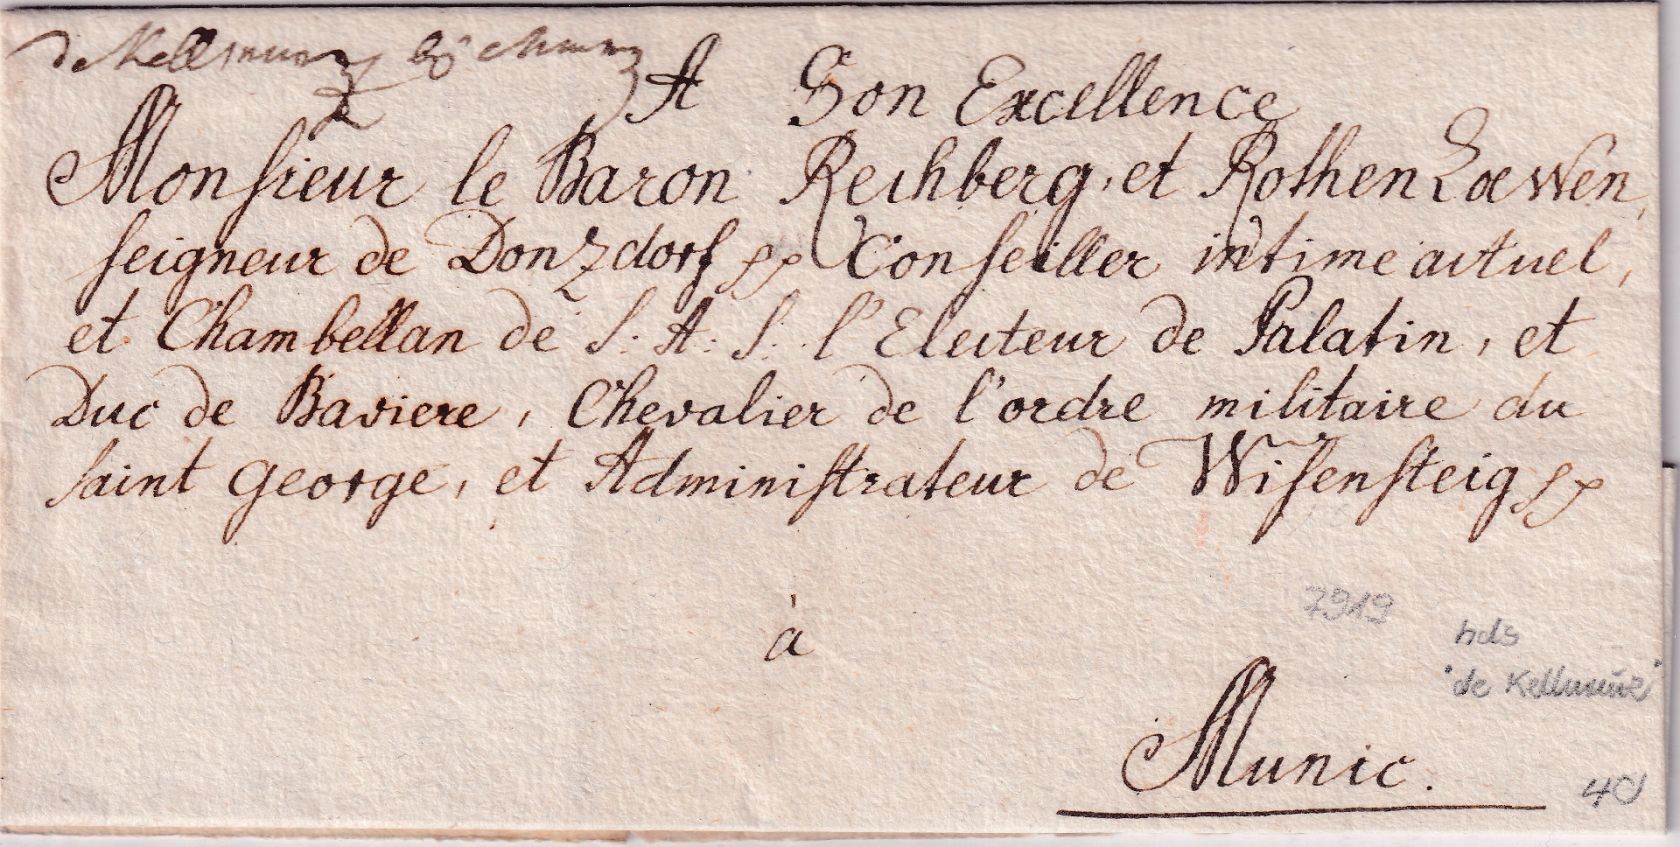 de Kellmünz
A Son Excellence
Monsieur le Baron Rechberg, et Rothen Loewen,
seigneur de Donzdorf pp Conseiller intime actuel,
et Chambellan de S. A. S. l'Electeur de Palatin, et
Duc de Baviere, Chevalier de l'ordre militaire du
saint George, et Administrateur de Wisensteig pp
à
Munic.
7919
hds
"de Kellmünz"
40